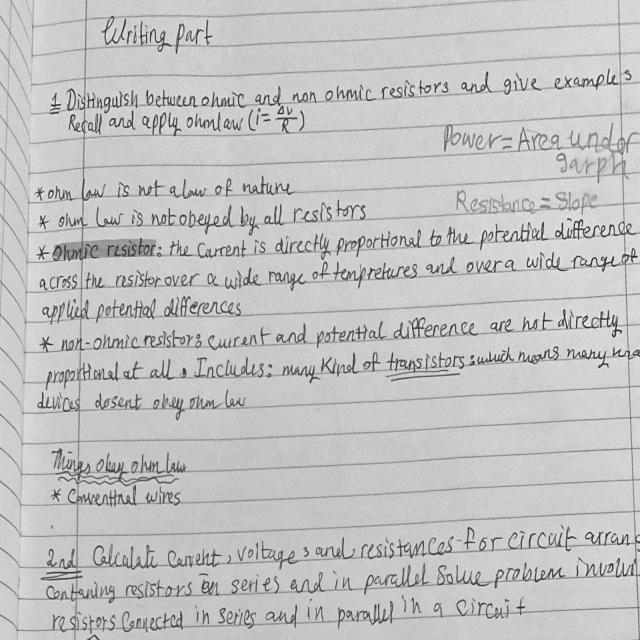 Writing part
1 Distinguish between ohmic and non ohmic resistors and give examples
Recall and apply ohm law (i = ΔV/R)
Power = Area under
garph
* ohm law is not a law of nature
Resistance = Slope
* ohm law is not obeyed by all resistors
* Ohmic resistor: the current is directly proportional to the potential difference
across the resistor over a wide range of tempretures and over a wide range of
applied potential differences
* non-ohmic resistor: current and potential difference are not directly
proportional at all. Includes: many Kind of transistors: which means many
devices dosent obey ohm law
Things obay ohm law
* Conventinal wires
2nd Calculate current, voltages and resistances for circuit arran
Contaning resistors in series and in parallel Solve problem involvi
resistors Connected in series and in parallel in a circuit